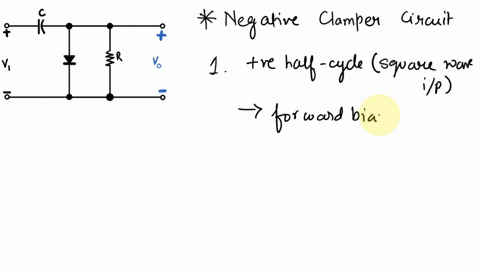 C
+
+
V₁
R
V₀
-
-
* Negative Clamper Circuit
1. +ve half-cycle (square wave
i/p)
→ forward bia